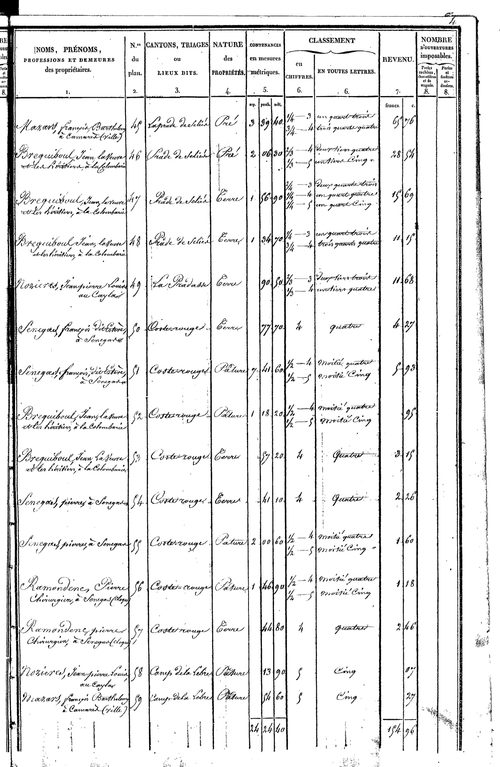 NOMS, PRÉNOMS,
PROFESSIONS ET DEMEURES
des propriétaires.
1.
N.os
du
plan.
2.
CANTONS, TRIAGES
ou
LIEUX DITS.
3.
NATURE
des
PROPRIÉTÉS.
4.
CONTENANCES
en mesures
métriques.
5.
CLASSEMENT
en
CHIFFRES.
6.
EN TOUTES LETTRES.
6.
REVENU.
7.
NOMBRE
D'OUVERTURES
imposables.
8.
8.
francs. c.
Mazars, françois Barthélemy 45 Pré 3 39 40 1/4 — 3 un quart trois 65 76
à Camarès (ville) 3/4 — 4 trois quarts quatre
Breguiboul, Jean, la veuve 46 Prade de Solié Pré 2 06 30 28 54
et les héritiers, à la Colombarie
Breguiboul, Jean, la veuve 47 Prade de Solié Terre 1 56 90 15 69
et les héritiers, à la Colombarie
Breguiboul, Jean, la veuve 48 Prade de Solié Terre 1 34 70 1/4 — 3 un quart trois 11 15
et les héritiers, à la Colombarie 3/4 — 4 trois quarts quatre
Nozieres, Jean pierre Louis 49 La Pradasse Terre 90 50 2/3 — 3 deux tiers trois 11 68
au Caylar 1/3 — 4 un tiers quatre
Senegas, françois 50 Costerouge Terre 77 70 4 quatre 4 27
à Senegas
Senegas, françois 51 Costerouge Pâture 7 41 60 1/2 — 4 moitié quatre 5 93
à Senegas 1/2 — 5 moitié Cinq
Breguiboul, Jean, la veuve 52 Costerouge Pature 1 18 20 1/2 — 4 moitié quatre 95
et les héritiers, à la Colombarie 1/2 — 5 moitié Cinq
Breguiboul, Jean, la veuve 53 Costerouge Terre 57 20 4 Quatre 3 15
et les héritiers, à la Colombarie
Senegas, pierre, à Senegas 54 Costerouge Terre 41 10 4 Quatre 2 26
Senegas, pierre, à Senegas 55 Costerouge Pature 2 00 60 1/2 — 4 moitié quatre 1 60
1/2 — 5 moitié Cinq
Ramondenc, Pierre 56 Costerouge Pâture 1 46 90 1/2 — 4 moitié quatre 1 18
Chirurgien, à Senegas 1/2 — 5 moitié Cinq
Ramondenc, pierre 57 Costerouge Terre 44 80 4 quatre 2 46
Chirurgien, à Senegas
Nozieres, Jean pierre Louis 58 Camp de la Lebre Pâture 13 90 5 Cinq 07
au Caylar
Mazars, françois Barthélemy 59 Camp de la Lebre Pâture 54 60 5 Cinq 27
à Camarès (ville)
24 24 40 154 96